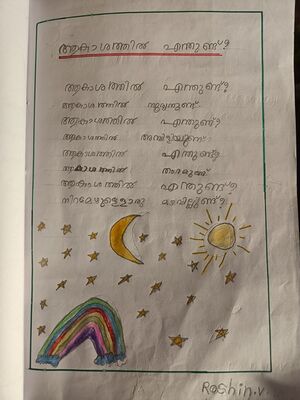 ആകാശത്തിൽ എന്തുണ്ട്?
ആകാശത്തിൽ എന്തുണ്ട്?
ആകാശത്തിൽ സൂര്യനുണ്ട്
ആകാശത്തിൽ എന്തുണ്ട്?
ആകാശത്തിൽ അമ്പിളിയുണ്ട്
ആകാശത്തിൽ എന്തുണ്ട്?
ആകാശത്തിൽ താരമുണ്ട്
ആകാശത്തിൽ എന്തുണ്ട്?
നിറമേഴുള്ളൊരു മഴവില്ലുണ്ട്?
Roshin.v